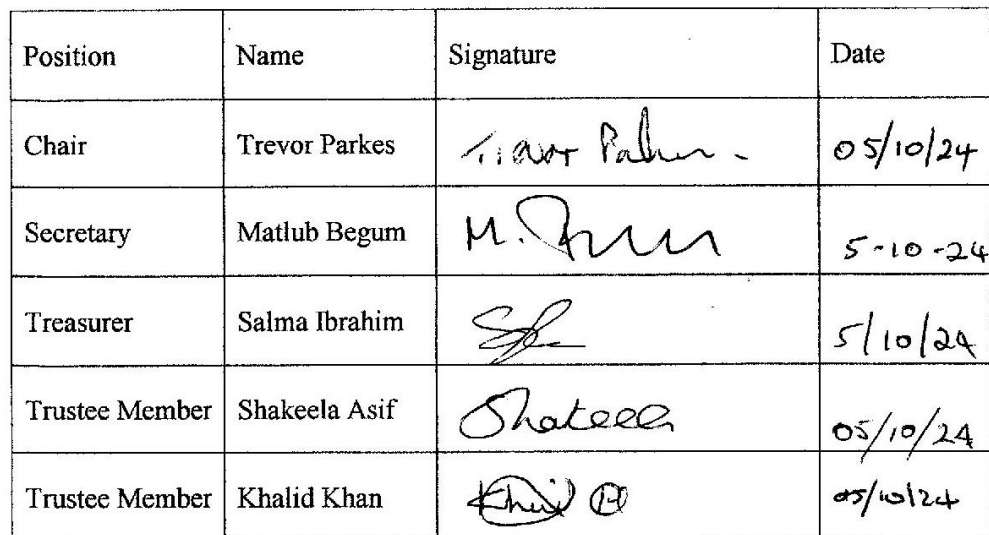 Position Name Signature Date
Chair Trevor Parkes Trevor Parkes 05/10/24
Secretary Matlub Begum M. 5-10-24
Treasurer Salma Ibrahim 5/10/24
Trustee Member Shakeela Asif Shakeela 05/10/24
Trustee Member Khalid Khan 05/10/24